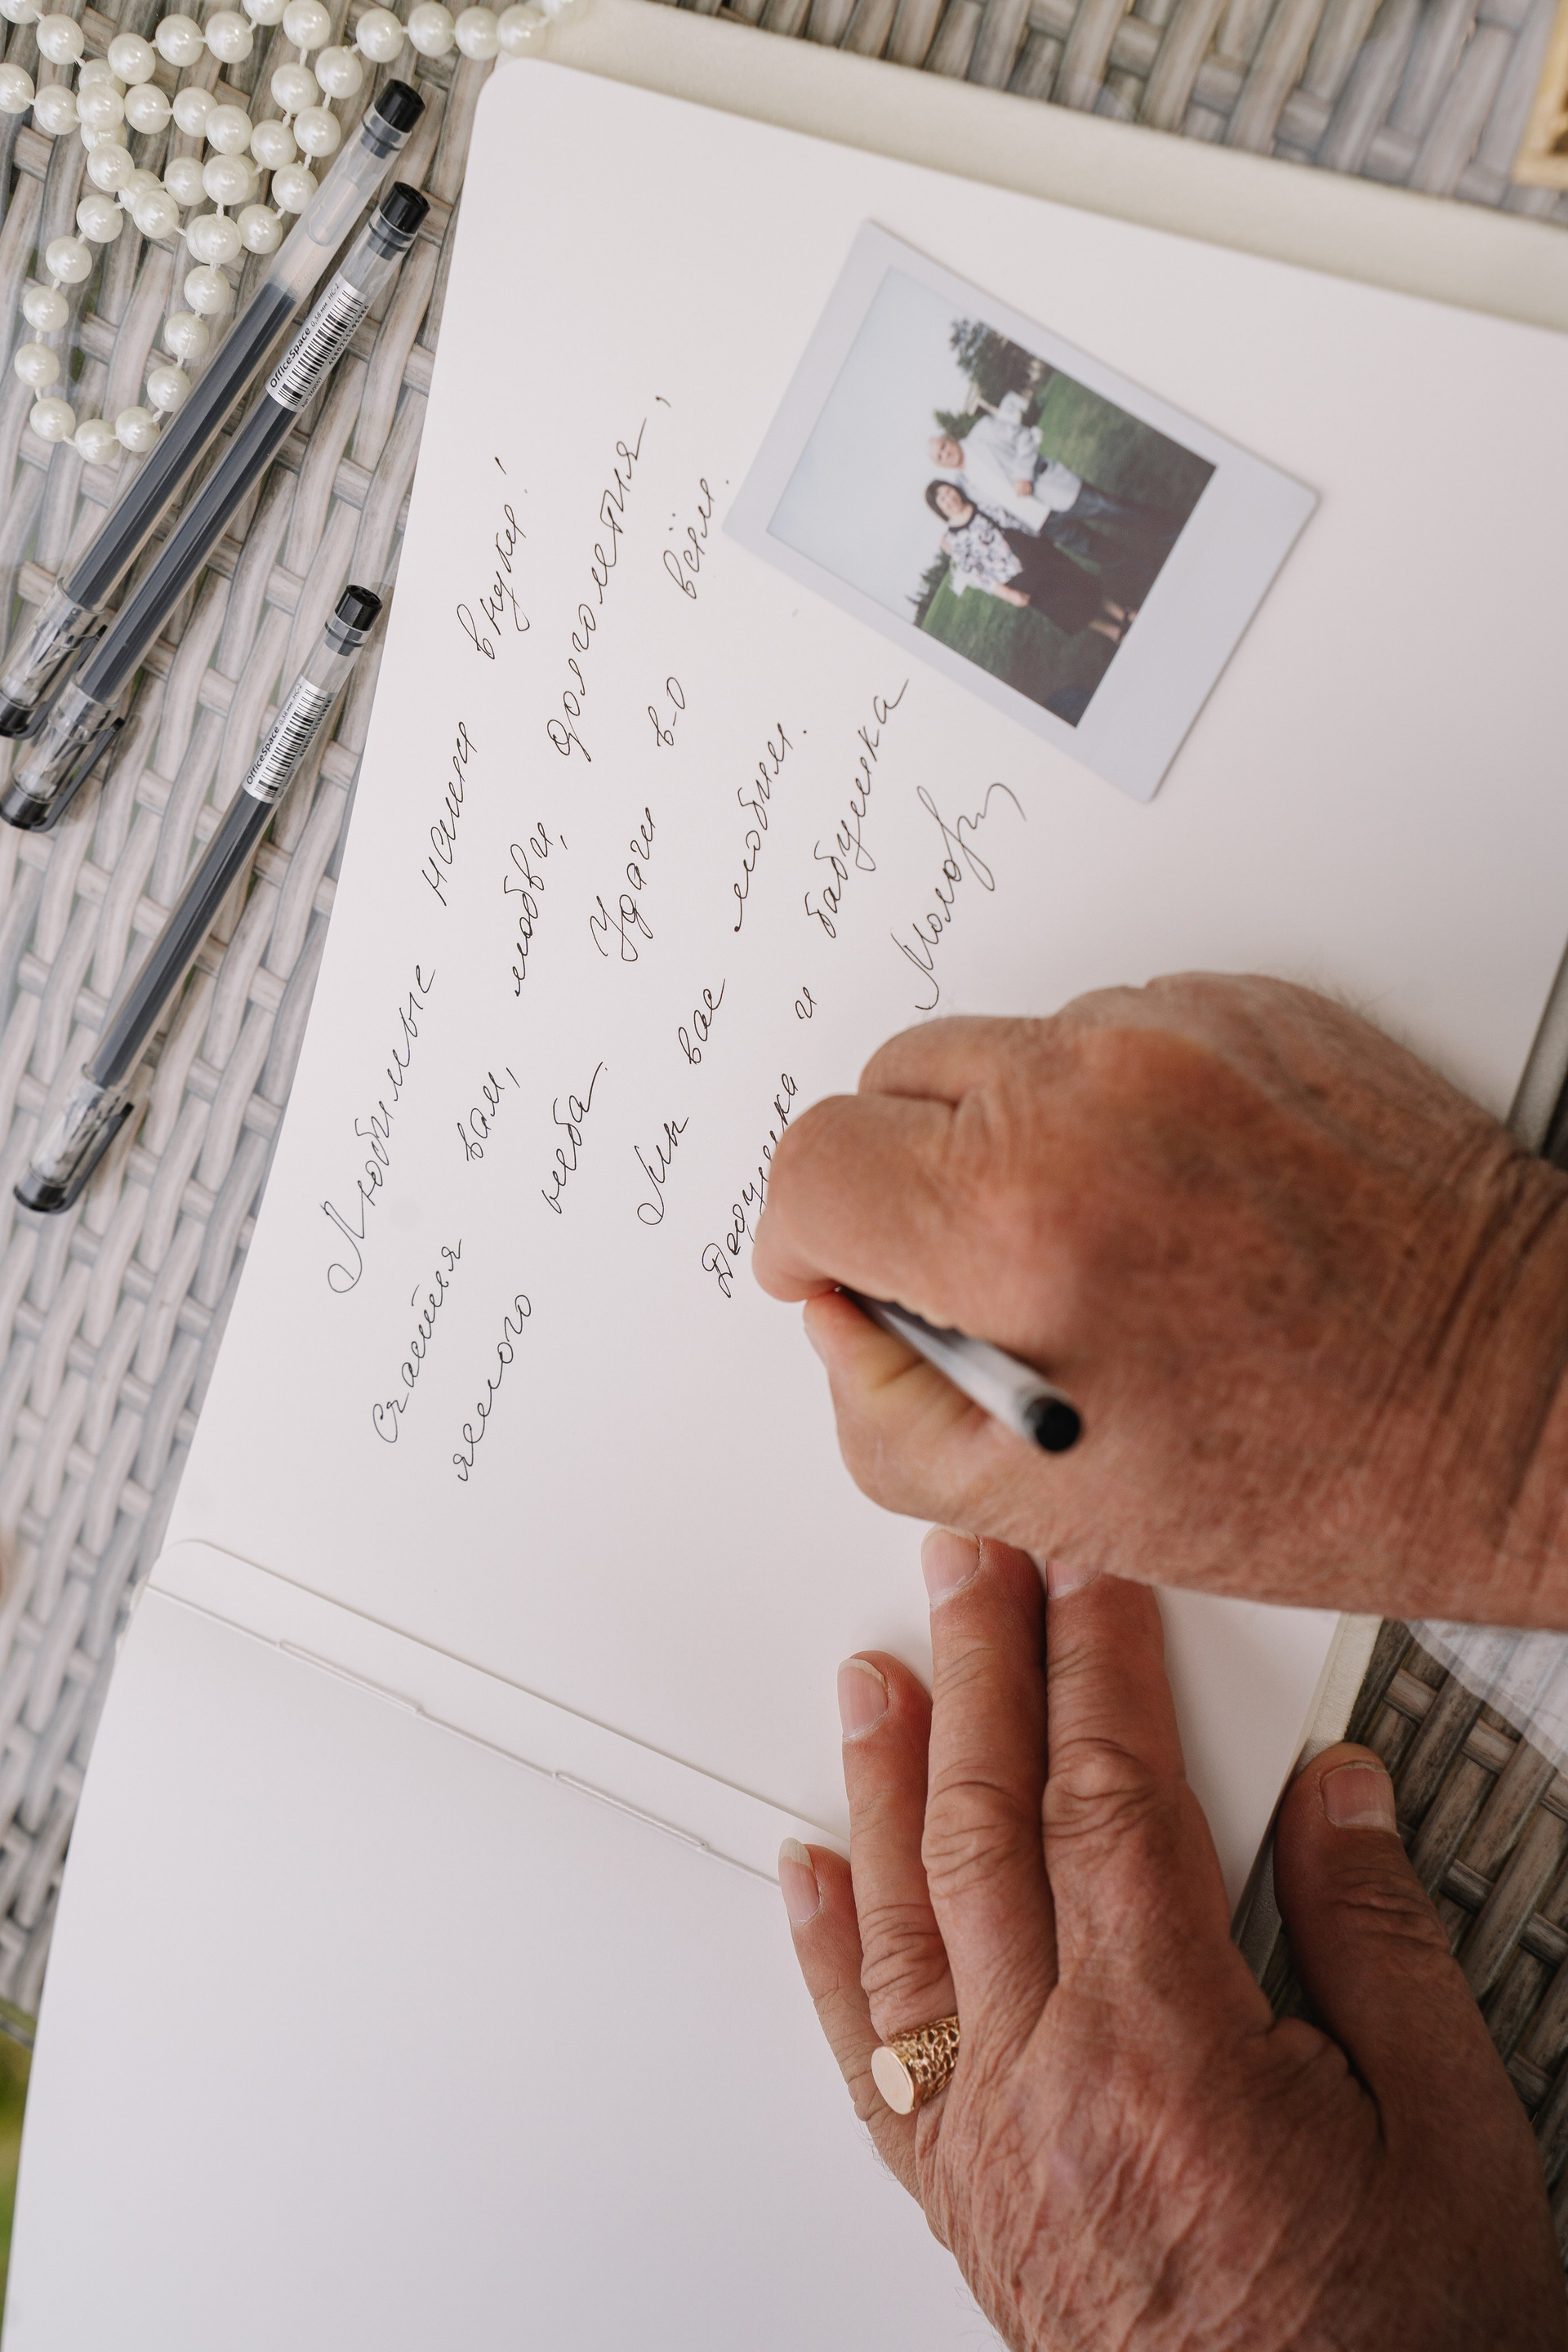 Любимые наши внуки!
Счастья вам, любви, долголетия,
ясного неба. Удачи во всём.
Мы вас любим.
Дедушка и бабушка
OfficeSpace 0.38 мм HC-2
OfficeSpace 0.38 мм HC-2